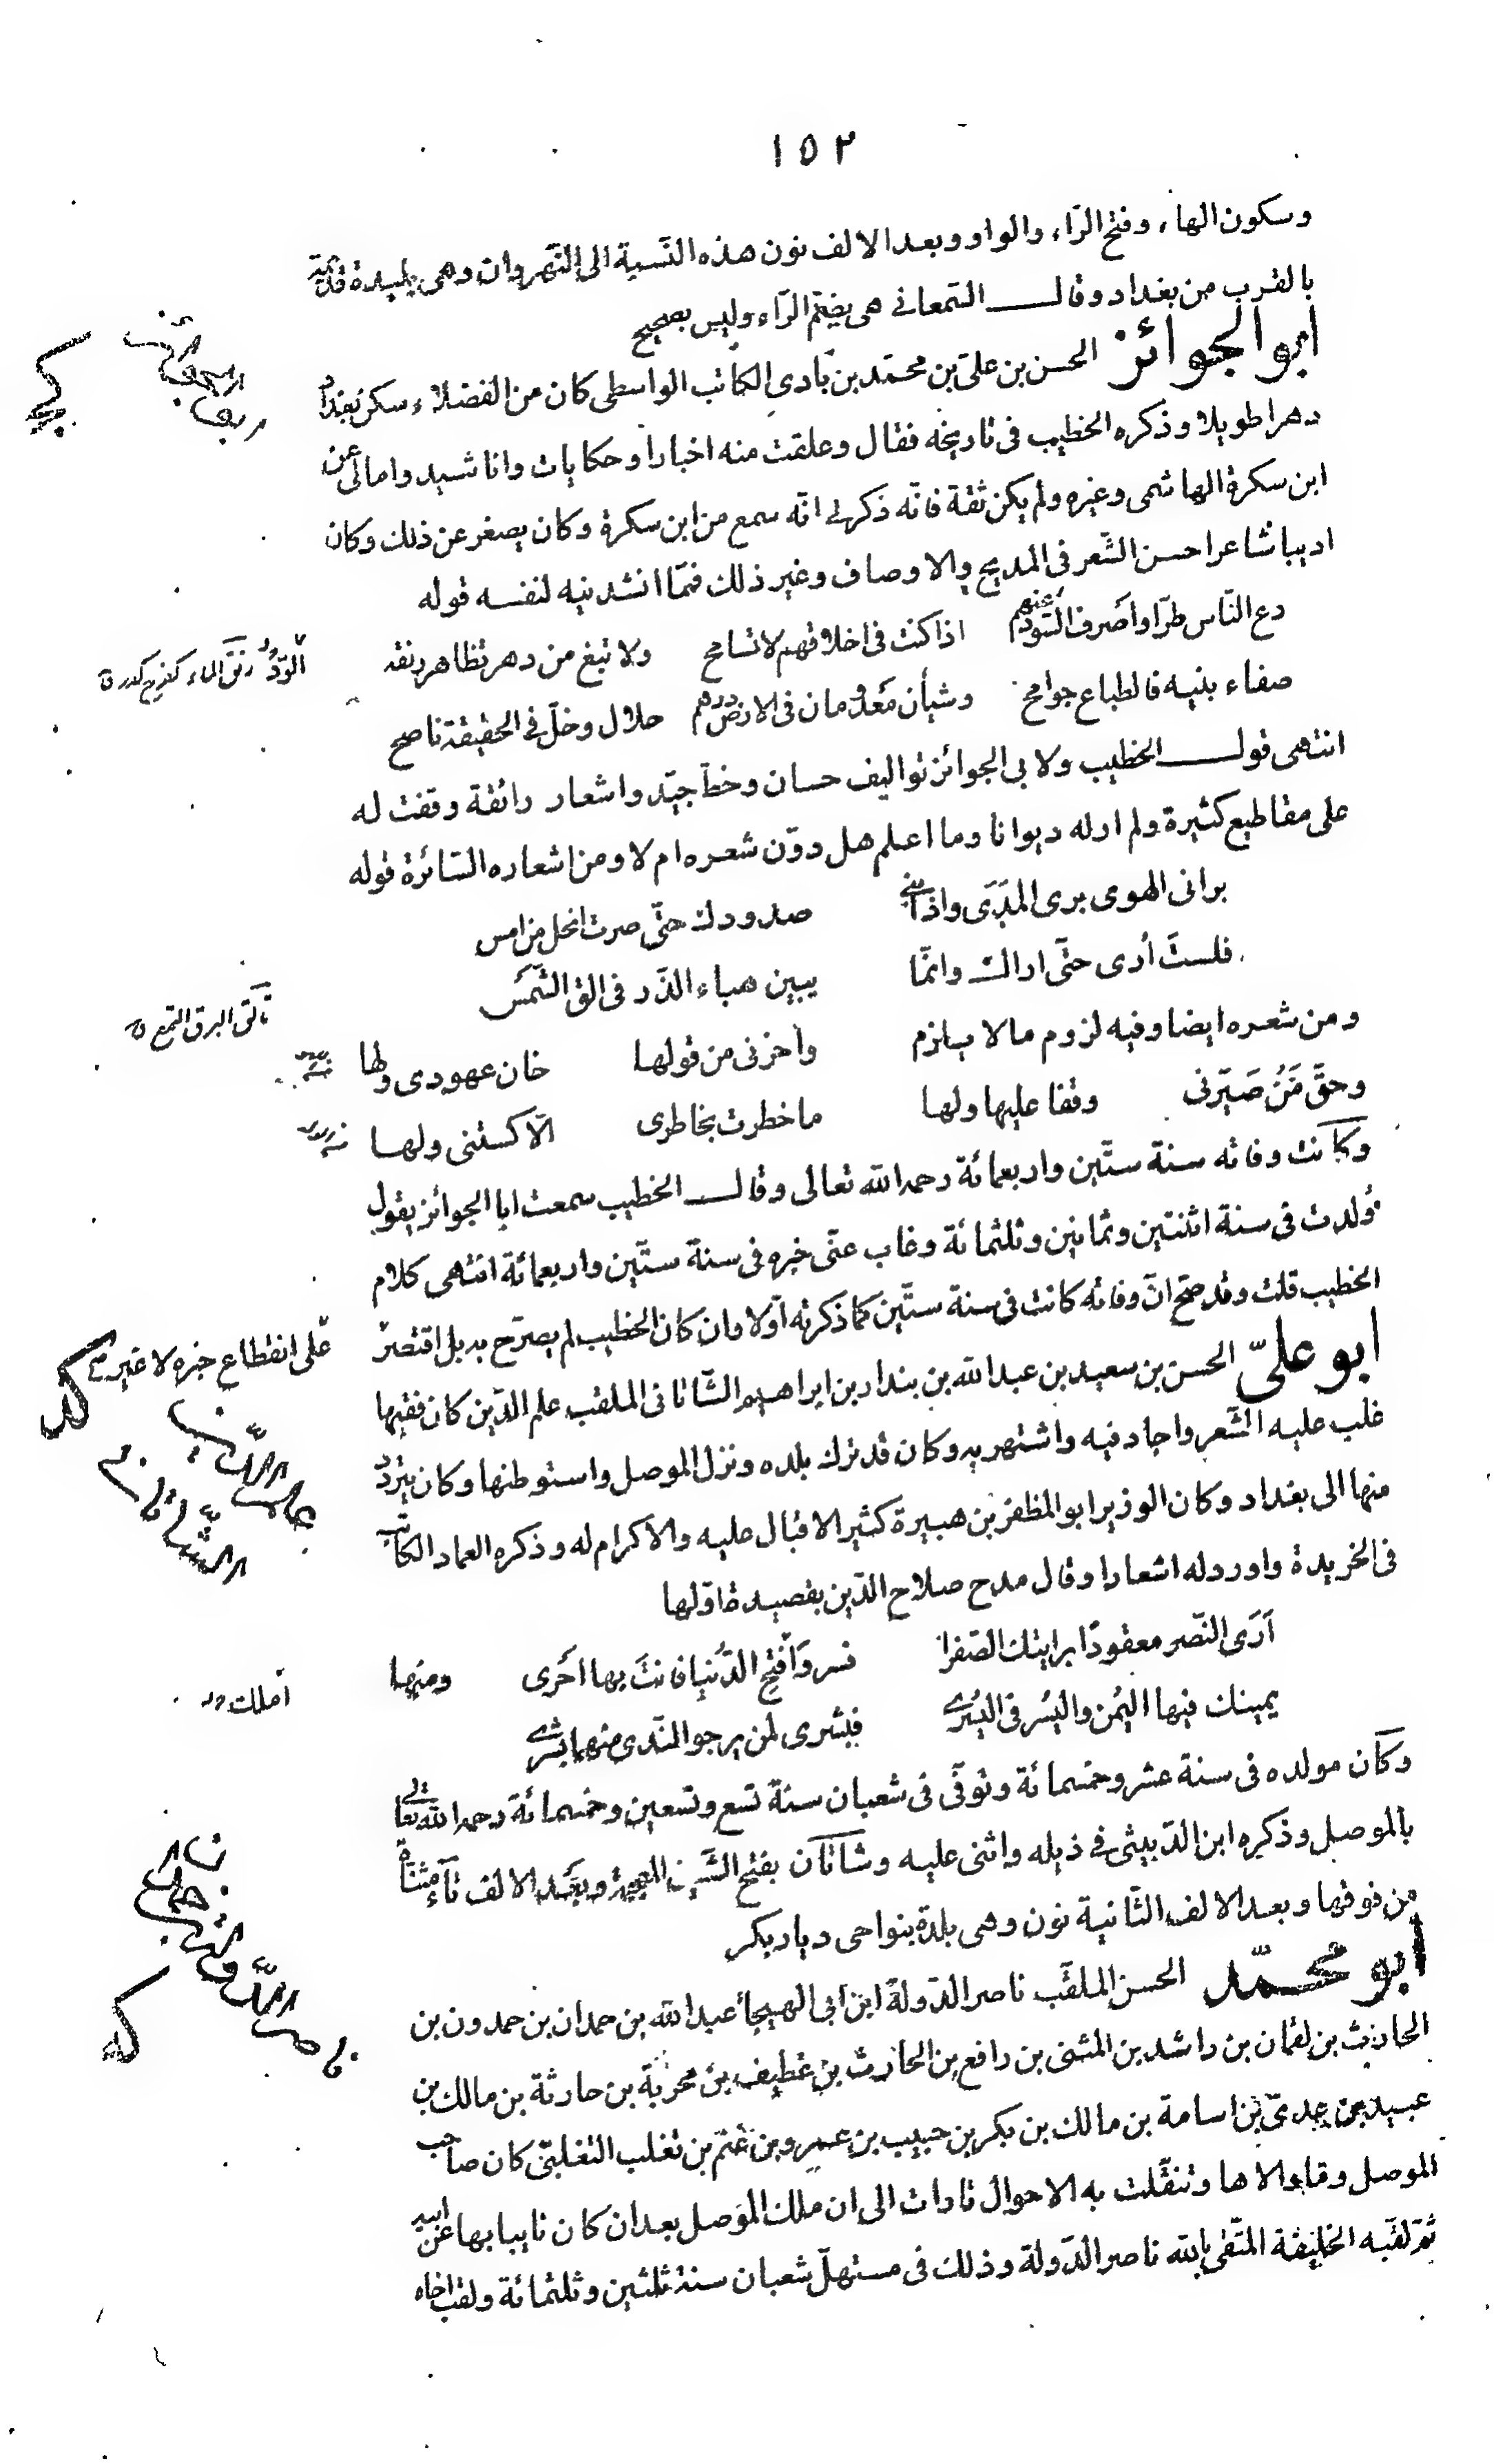 ١٥٢
وسكون الهاء وفتح الرّاء والواو وبعد الالف نون هذه النّسبة الى النّهروان وهى بليدة قديمة
بالقرب من بغداد وقال السّمعانى هى بضمّ الرّاء وليس بصحيح
ابو الجوائز الحسن بن علىّ بن محمّد بن بادى الكاتب الواسطى كان من الفضلاء سكن بغداد
ابو الجوائز
دهرا طويلا وذكره الخطيب فى تاريخه فقال وعلقت منه اخبارا وحكايات واناشيد وامالى عن
ابن سكرة الهاشمى وغيره ولم يكن ثقة فانّه ذكر لى انّه سمع من ابن سكرة وكان يصغر عن ذلك وكان
اديبا شاعرا حسن الشّعر فى المديح والاوصاف وغير ذلك فممّا انشدنيه لنفسه قوله
دع النّاس طرّا واصرف التّودّ عنهم اذا كنت فى اخلاقهم لا تسامح ولا تبغ من دهر تظاهر رنقه
الوّدّ رنق الماء كفرح كدر ق
صفاء بنيه فالطباع جوامح وشيأن معدومان فى الارض درهم حلال وخلّ فى الحقيقة ناصح
انتهى قول الخطيب ولابى الجوائز تواليف حسان وخطّ جيّد واشعار رائقة وقفت له
على مقاطيع كثيرة ولم ار له ديوانا وما اعلم هل دوّن شعره ام لا ومن اشعاره السّائرة قوله
برانى الهوى برى المدى واذابنى صدودك حتّى صرت انحل من امس
فلست أرى حتّى اراك وانّما يبين هباء الذّر فى الق الشّمس
تألق البرق التمع ق
ومن شعره ايضا وفيه لزوم ما لا يلزم واحزنى من قولها خان عهودى ولها
وحقّ مَن صَيّرنى وقفا عليها ولها ما خطرت بخاطرى الّا كستنى ولها
وكانت وفاته سنة ستّين واربعمائة رحمه الله تعالى وقال الخطيب سمعت ابا الجوائز يقول
وُلدت فى سنة اثنتين وثمانين وثلثمائة وغاب عنّى خبره فى سنة ستّين واربعمائة انتهى كلام
الخطيب قلت وقد صحّ انّ وفاته كانت فى سنة ستّين كما ذكرته اوّلا وان كان الخطيب لم يصرّح به بل اقتصر
على انقطاع خبره لا غير
ابو علىّ الحسن بن سعيد بن عبد الله بن بندار بن ابراهيم الشّاتانى الملقب علم الدّين كان فقيها
علم الدّين
الشّاتانى
غلب عليه الشّعر واجاد فيه واشتهر به وكان قد ترك بلده ونزل الموصل واستوطنها وكان يتردّد
منها الى بغداد وكان الوزير ابو المظفر بن هبيرة كثير الاقبال عليه والاكرام له وذكره العماد الكاتب
فى الخريدة واورد له اشعارا وقال مدح صلاح الدّين بقصيدة اوّلها
أرَى النّصر معقودًا برايتك الصّفرا فسر وَافتح الدُّنيا فانتَ بها احَرى ومنها
املك
يمينك فيها اليُمن واليُسر فى اليُسرى فبشرى لمن يرجو النّدى منهما بشرى
وكان مولده فى سنة عشر وخمسمائة وتوفّى فى شعبان سنة تسع وتسعين وخمسمائة رحمه الله تعالى
بالموصل وذكره ابن الدّبيثى فى ذيله واثنى عليه وشاتان بفتح الشّين المعجمة وبعد الالف تاء مثنّاة
من فوقها وبعد الالف الثّانية نون وهى بلدة بنواحى ديار بكر
ابو محمّد الحسن الملقّب ناصر الدّولة ابن ابى الهيجاء عبد الله بن حمدان بن حمدون بن
ناصر الدّولة بن حمدان
الحارث بن لقمان بن راشد بن المثنى بن رافع بن الحارث بن غطيف بن محربة بن حارثة بن مالك بن
عبيد بن عدىّ بن اسامة بن مالك بن بكر بن حبيب بن عمرو بن غنم بن تغلب التغلبىّ كان صاحب
الموصل وما والاها وتنقّلت به الاحوال تارات الى ان ملك الموصل بعد ان كان نايبا بها عن ابيه
ثمّ لقّبه الخليفة المتّقى بالله ناصر الدّولة وذلك فى مستهلّ شعبان سنة ثلثين وثلثمائة ولقب اخاه